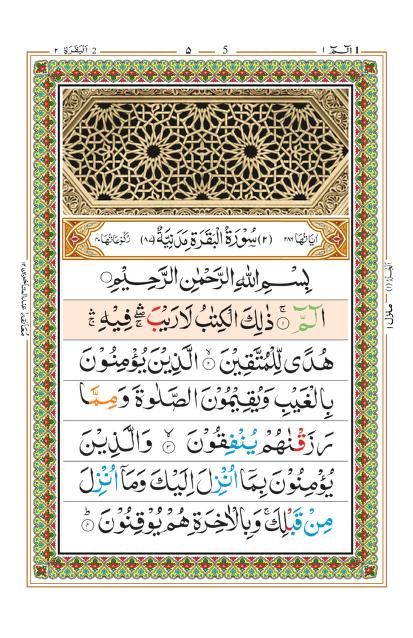 الٓمّٓ ١
5 ۵
2 اَلْبَقَرَة ٢
اٰيَاتُهَا ٢٨٦ (٢) سُوْرَةُ الْبَقَرَةِ مَدَنِيَّةٌ (٨٧) رُكُوْعَاتُهَا ٤٠
بِسْمِ اللّٰهِ الرَّحْمٰنِ الرَّحِيْمِ
الٓمّٓ ۚ ١ ذٰلِكَ الْكِتٰبُ لَا رَيْبَ ۛ فِيْهِ ۛ
هُدًى لِّلْمُتَّقِيْنَ ۙ ٢ الَّذِيْنَ يُؤْمِنُوْنَ
بِالْغَيْبِ وَيُقِيْمُوْنَ الصَّلٰوةَ وَمِمَّا
رَزَقْنٰهُمْ يُنْفِقُوْنَ ۙ ٣ وَالَّذِيْنَ
يُؤْمِنُوْنَ بِمَآ اُنْزِلَ اِلَيْكَ وَمَآ اُنْزِلَ
مِنْ قَبْلِكَ ۚ وَبِالْاٰخِرَةِ هُمْ يُوْقِنُوْنَ ۗ ٤